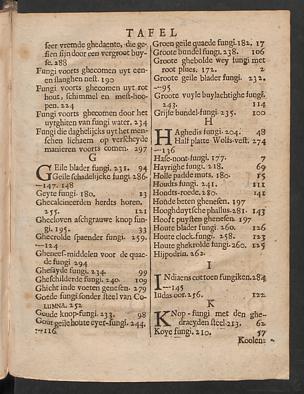 TAFEL
seer vremde ghedaente, die ge-
sien sijn door een vergroot buy-
se. 288
Fungi voorts ghecomen uyt een-
en slanghen nest. 190
Fungi voorts ghecomen uyt rot
hout, schimmel en mesthoo-
pen. 224
Fungi voorts ghecomen door het
uytghiten van fungi water. 234
Fungi die daghelijcks uyt het men-
schen lichaem op verscheyde
manieren voorts comen. 297
G
GEile blader fungi. 231. 94
Geile schadelijcke fungi. 286
—147. 148
Geyte fungi. 180. 13
Ghecalcineerden herds horen.
255. 121
Ghecloven aschgrauwe knop fun-
gi. 195. 33
Ghecrolde spaender fungi. 259.
—124
Gheneef-middelen voor de quae-
de fungi 294
Ghesayde fungi. 234. 99
Gheschilderde fungi. 240. 109
Ghicht inde voeten genesen. 279
Goede fungi sonder steel van Co-
lumna. 252
Goude knop-fungi. 233. 98
Goor geile houte eyer-fungi. 244.
—116
Groen geile quaede fungi. 182. 17
Groote bundel fungi. 238. 106
Groote ghebolde wey fungi met
root plues. 172. 2
Groote geile blader fungi. 232.
—95
Groote vuyle buylachtighe fungi.
243. 114
Grijse bundel-fungi. 235. 100
H
HAghedis fungi. 204. 48
Half platte Wolfs-vest. 274
—136
Hase-noot-fungi. 177. 7
Hayrighe fungi. 218. 69
Holle padde muts. 180. 15
Houdts fungi. 241. 111
Hondts-roede. 280. 141
Honde beten ghenesen. 297
Hooghduytsche phallus. 281. 143
Hooft puysten ghenesen. 297
Houte blader fungi. 260. 126
Houte clock-fungi. 258. 123
Houte ghekrolde fungi. 260. 125
Hijpodrin. 262.
I
INdiaens cottoen fungiken. 284
—145
Iudas oor. 256. 122
K
KNop-fungi met den ghe-
draeyden steel. 213. 62
Koye fungi. 210. 57
Koolen-